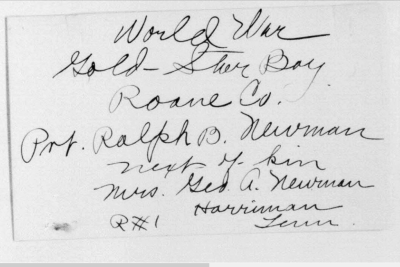 World War
Gold-Star Boy
Roane Co.
Pvt. Ralph B. Newman
next of kin
Mrs. Geo. A. Newman
Harriman
R#1 Tenn.